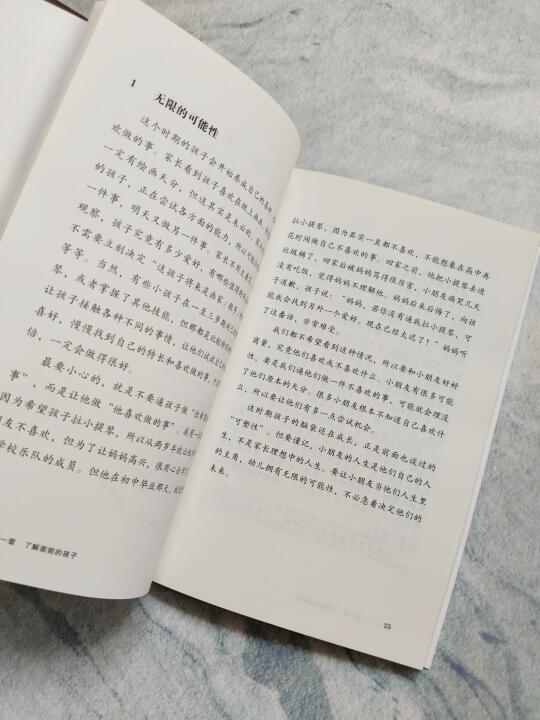 1 无限的可能性
这个时期的孩子会开始养成自己的喜好,
欢做的事。家长看到孩子喜欢在纸上画画,
一定有绘画天分,但这其实是未必的,
的孩子,正在尝试各方面的能力,所以可能
一件事,明天又做另一件事。家长不用太
观察,孩子究竟有多少爱好,有哪些值得
不需要立刻决定“这孩子将来是画家,
等等。当然,有些小孩子在一至三岁期间
琴,或者掌握了其他技能,但那都是比较
让孩子接触各种不同的事情,让他们试试
喜好,慢慢找到自己的特长和喜欢做的事,
倍,一定会做得很好。
最要小心的,就是不要逼孩子做
事”,而是让他做“他喜欢做的事”。我有一
因为希望孩子拉小提琴,所以从两岁半就
朋友不喜欢,但为了让妈妈高兴,很用心去
学校乐队的成员。但他在初中毕业那天,
一章 了解面前的孩子
拉小提琴,因为其实一直都不喜欢,不能想象在高中再
花时间做自己不喜欢的事。回家之前,他把小提琴丢进
垃圾桶了,回家后被妈妈骂得很厉害,小朋友痛哭几天
没有吃饭,觉得妈妈不理解他。妈妈后来后悔了,向孩
子道歉,孩子说:“妈妈,若你没有逼我拉小提琴,可
能我会找到另外一个爱好。现在已经太迟了!”妈妈听
了这番话,非常难受。
我们都不希望看到这种情况,所以要和小朋友好好
商量,究竟他们喜欢或不喜欢什么。小朋友有很多可能
性。要是我们逼他们做一件不喜欢的事,可能就会埋没
了他们原本的天分。很多小朋友根本不知道自己喜欢什
么,所以要让他们有多一点尝试机会。
这时期孩子的脑袋还在成长,正是前面也谈过的
“可塑性”。但要谨记,小朋友的人生是他们自己的人
生,不是家长理想中的人生。要让小朋友当他们人生里
的主角,幼儿拥有无限的可能性,不必急着决定他们的
未来。
25